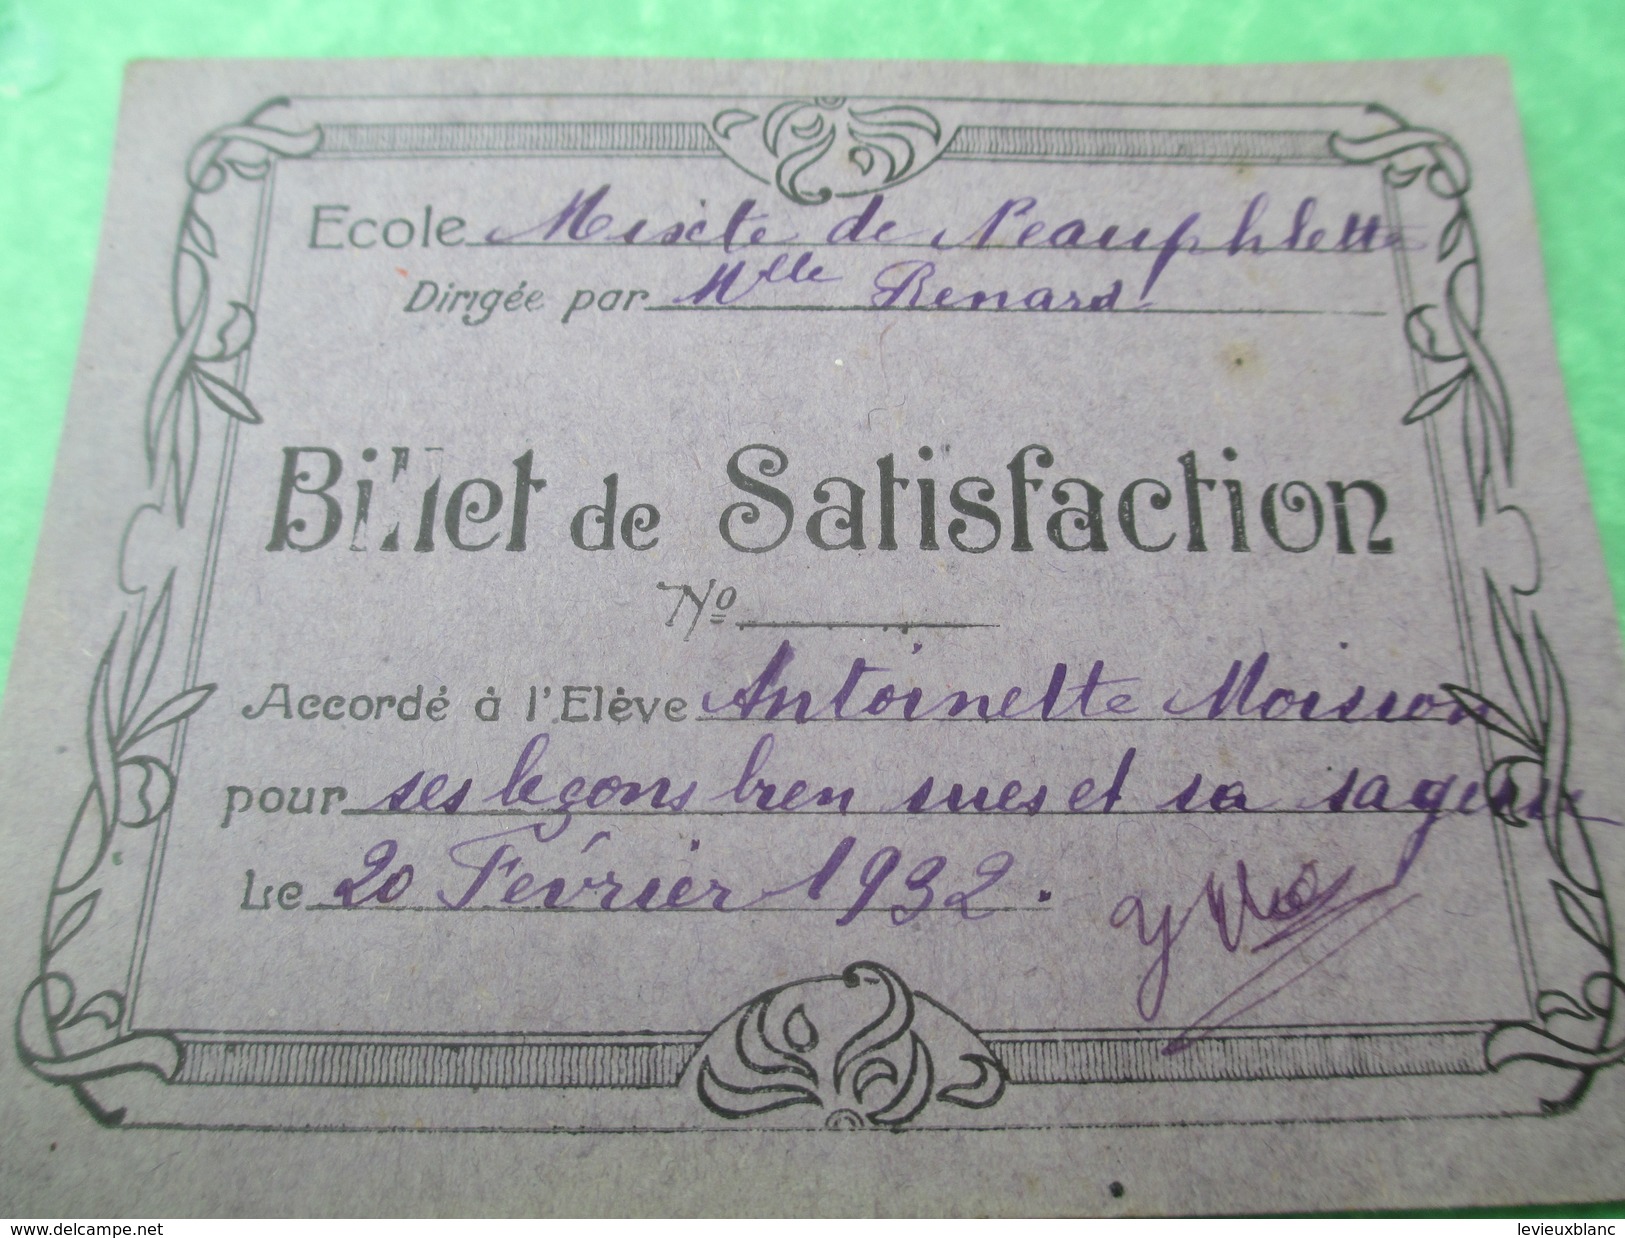 Ecole Mixte de Neauphlette
Dirigée par Mlle Renard
Billet de Satisfaction
No
Accordé à l'Elève Antoinette Moisson
pour ses leçons bien sues et sa sagesse
Le 20 Février 1932.
www.delcampe.net
levieuxblanc